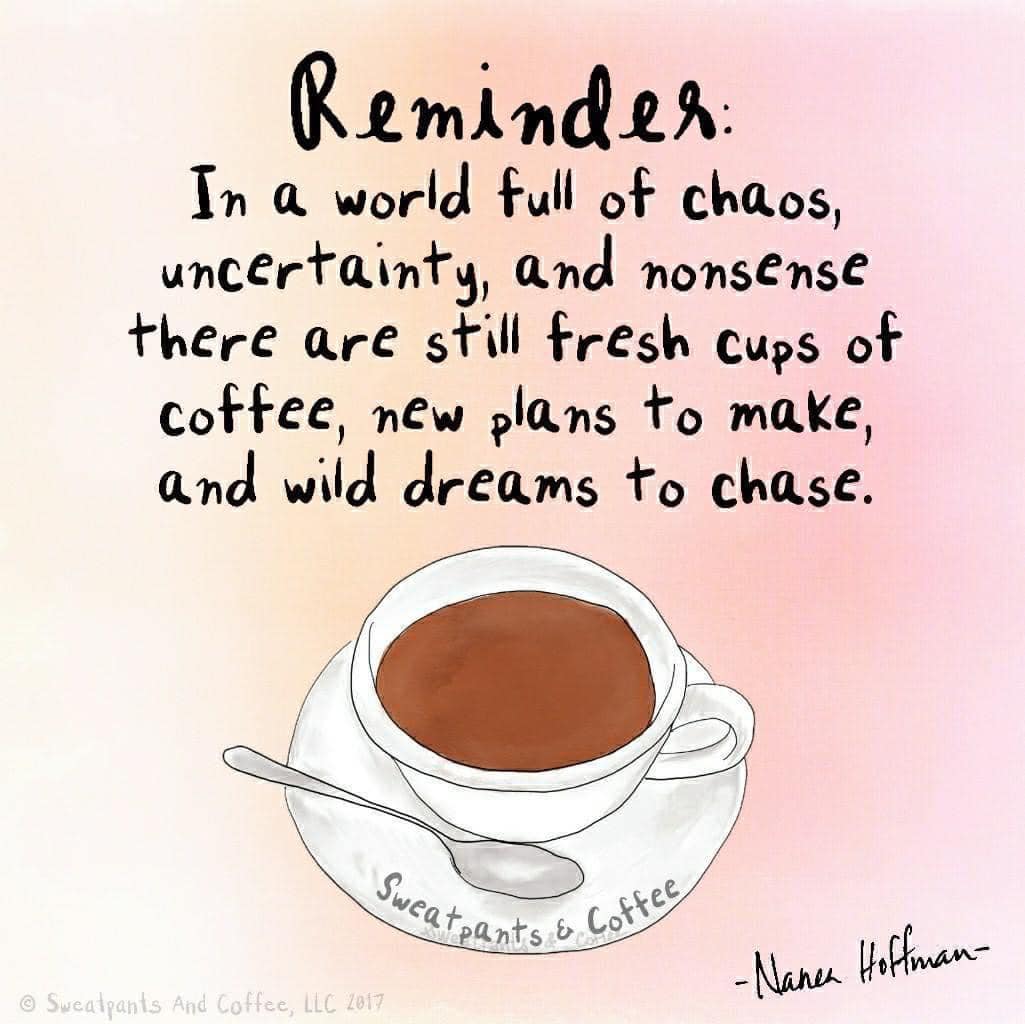 Reminder:
In a world full of chaos,
uncertainty, and nonsense
there are still fresh cups of
coffee, new plans to make,
and wild dreams to chase.
Sweatpants & Coffee
-Nanea Hoffman-
© Sweatpants And Coffee, LLC 2017